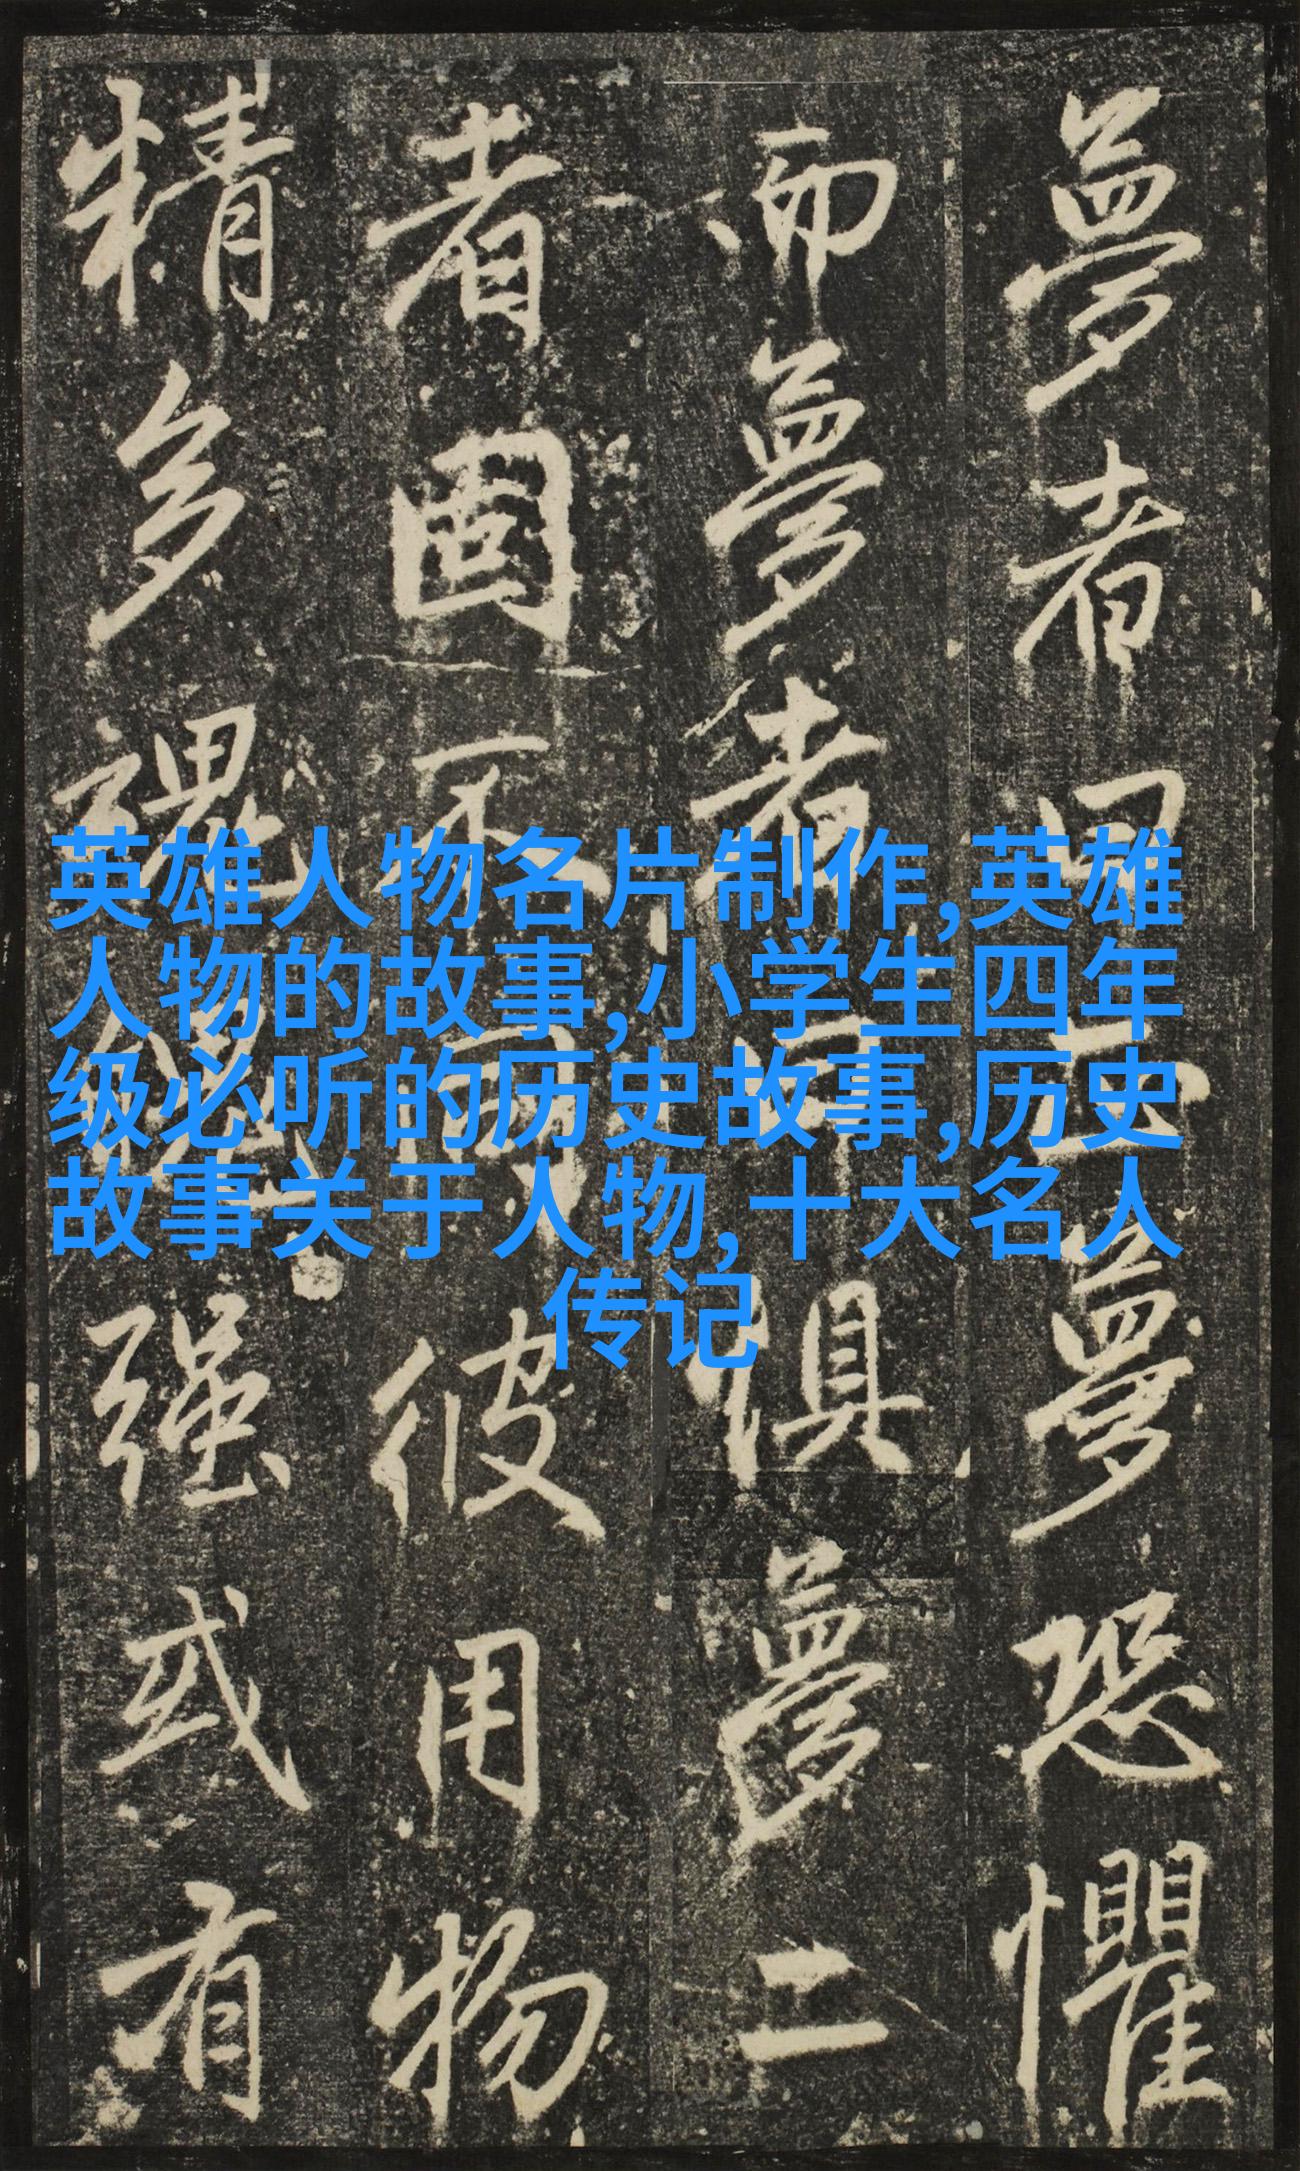 夢者夢恐懼
而夢者夢二
者固不可彼用物
精多魂强或有
英雄人物名片制作,英雄
人物的故事,小学生四年
级必听的历史故事,历史
故事关于人物,十大名人
传记